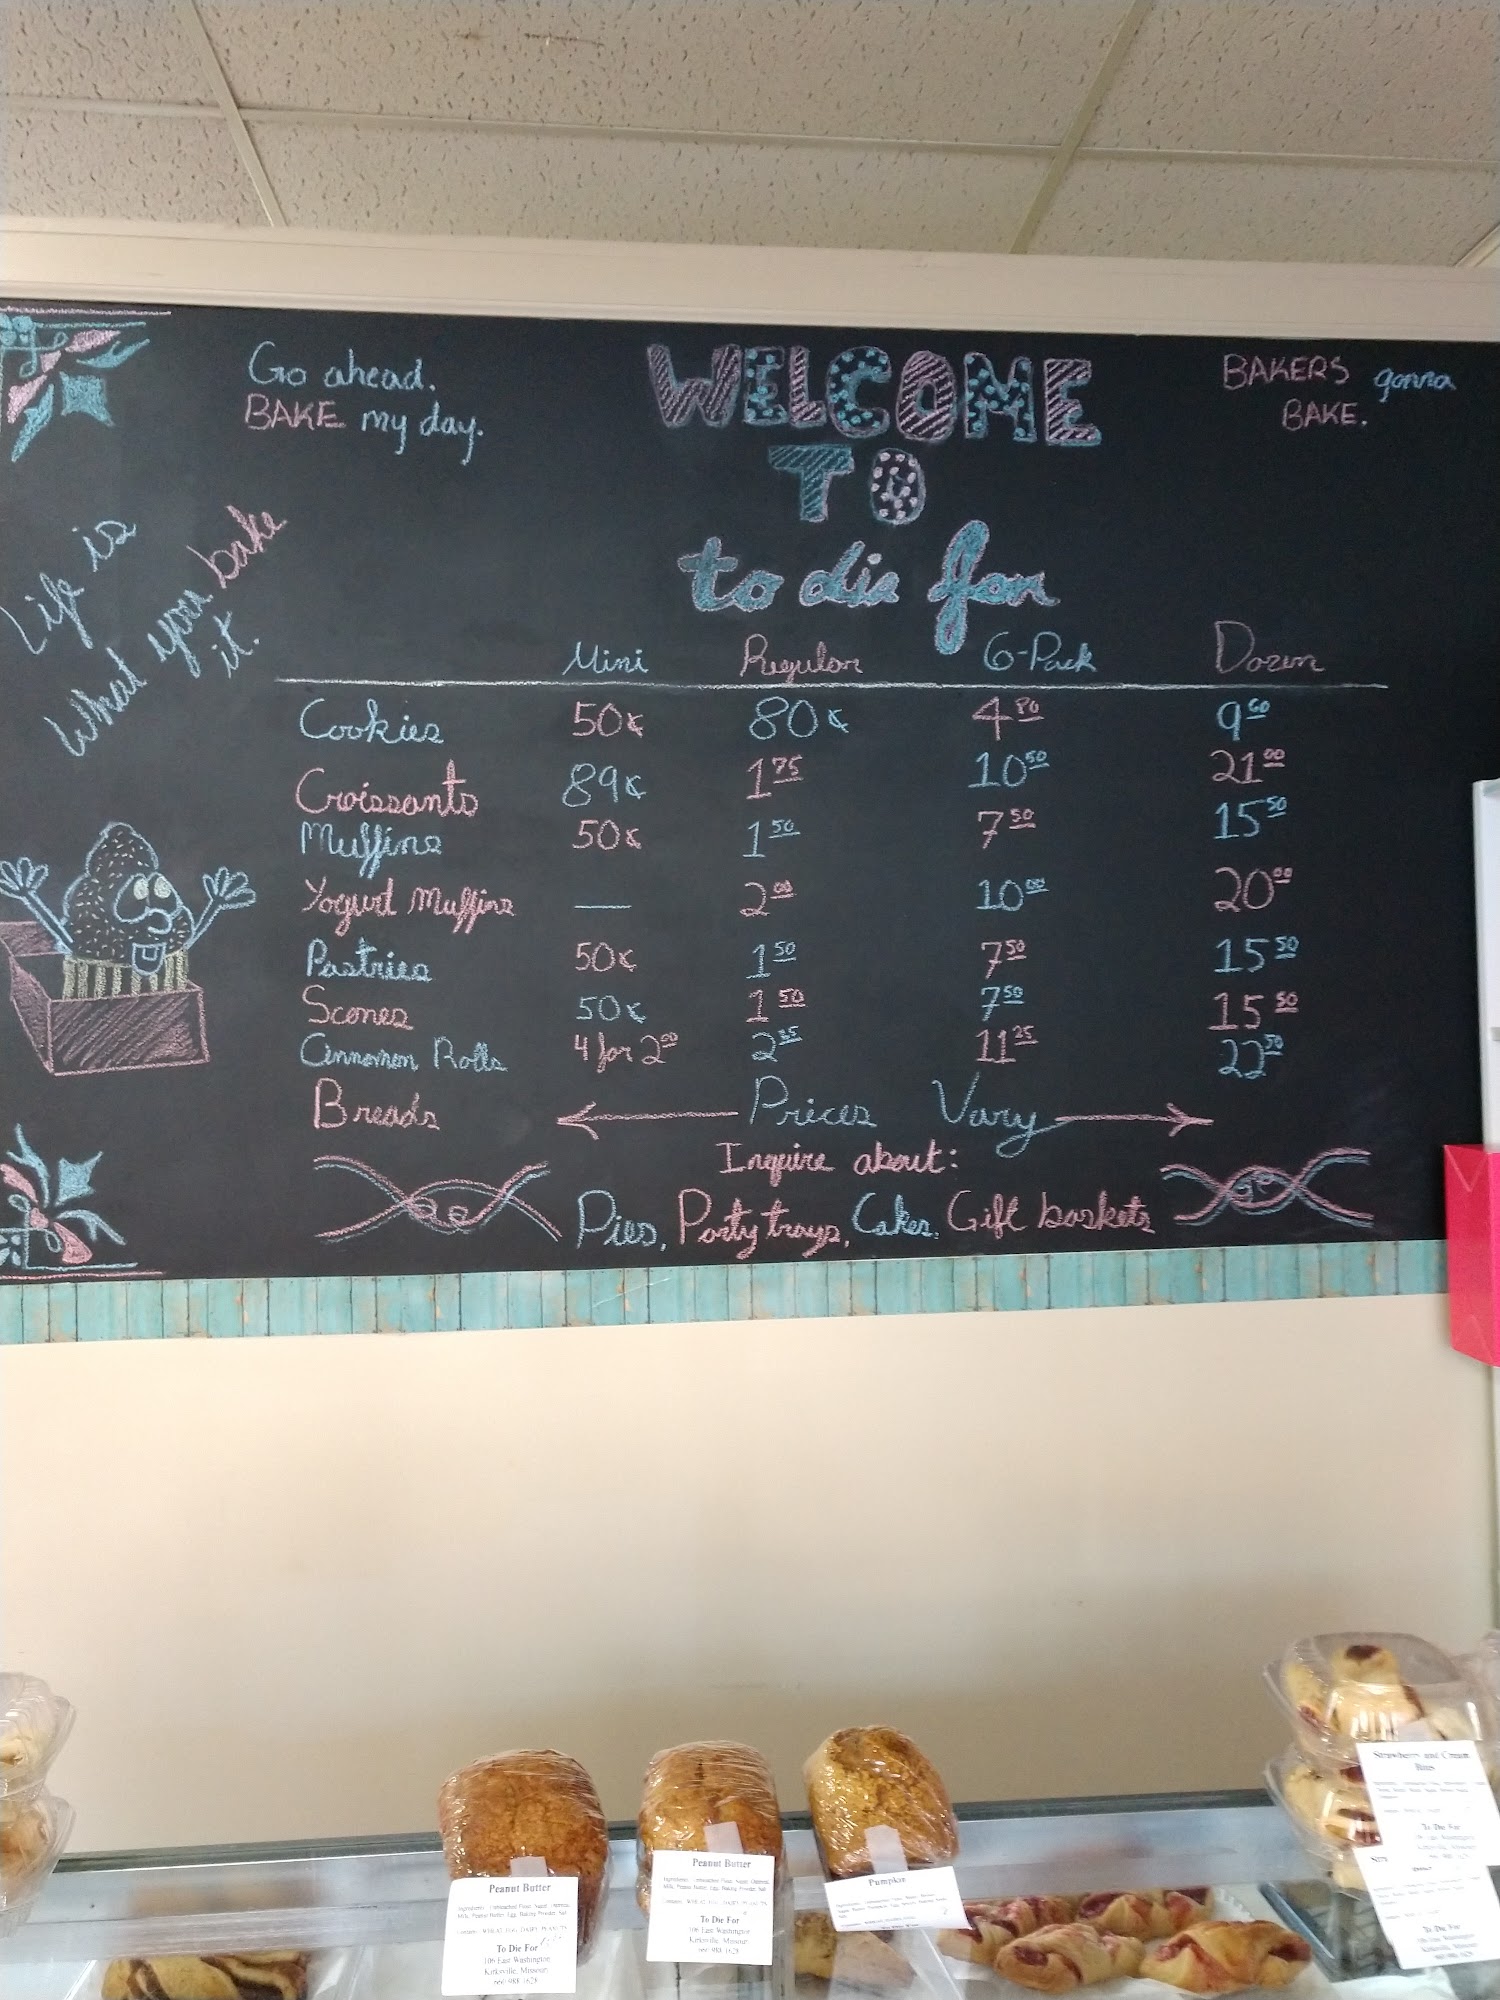 Go ahead.
BAKE my day.
WELCOME
TO
to die for
BAKERS gonna
BAKE.
Life is
what you bake
it.
Mini Regular 6-Pack Dozen
Cookies 50¢ 80¢ 4.80 9.60
Croissants 89¢ 1.75 10.50 21.00
Muffins 50¢ 1.50 7.50 15.50
Yogurt Muffins — 2.00 10.00 20.00
Pastries 50¢ 1.50 7.50 15.50
Scones 50¢ 1.50 7.50 15.50
Cinnamon Rolls 4 for 2.00 2.25 11.25 22.50
Breads Prices Vary
Inquire about:
Pies, Party trays, Cakes, Gift baskets
Peanut Butter
To Die For
106 East Washington
Kirksville, Missouri
660 988 1628
Peanut Butter
To Die For
106 East Washington
Kirksville, Missouri
660 988 1628
Pumpkin
Strawberry and Cream
Bites
To Die For